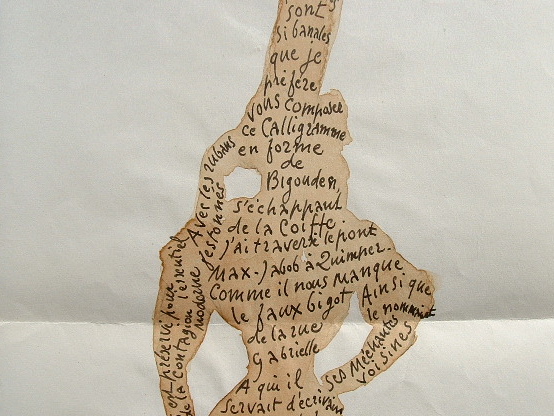 sont
si banales
que je
préfère
vous composer
ce Calligramme
en forme
de
Bigouden,
s'échappant
de la Coiffe
J'ai traversé le pont
Max-Jacob à Quimper.
Comme il nous manque
le faux bigot
de la rue
Gabrielle
A qui il
servait d'écrivain
Avec les rubans
est préservé pour
de la Contagion l'essentiel
moderne
Ainsi que
le nommaient
ses Méchantes
voisines